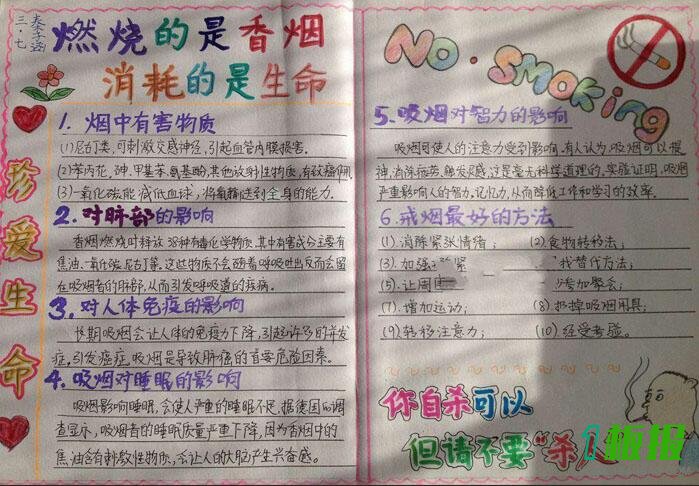 三.七
燃烧的是香烟
消耗的是生命
珍爱生命
1. 烟中有害物质
(1)尼古丁类,可刺激交感神经,引起血管内膜损害。
(2)苯丙芘,砷,甲基苯,氨基酚,其他放射性物质,有致癌作用
(3)一氧化碳能减低血球,将氧输送到全身的能力。
2. 对肺部的影响
香烟燃烧时释放38种有毒化学物质,其中有害成分主要有
焦油、一氧化碳、尼古丁等。这些物质不会随着呼吸吐出反而会留
在吸烟者的肺部,从而引发呼吸道的疾病。
3. 对人体免疫的影响
长期吸烟会让人体的免疫力下降,引起许多的并发
症,引发癌症,吸烟是导致肺癌的首要危险因素。
4. 吸烟对睡眠的影响
吸烟影响睡眠,会使人严重的睡眠不足,据德国的调
查显示,吸烟者的睡眠质量严重下降,因为香烟中的
焦油含有刺激性物质,会让人的大脑产生兴奋感。
NO·SMOKing
5. 吸烟对智力的影响
吸烟可使人的注意力受到影响,有人认为,吸烟可以提
神,消除疲劳,触发灵感,这是毫无科学道理的,实验证明,吸烟
严重影响人的智力,记忆力,从而降低工作和学习的效率。
6. 戒烟最好的方法
(1).消除紧张情绪; (2).食物转移法;
(3).加强 紧 找替代方法;
(5).让周围 参加聚会;
(7).增加运动; (8).扔掉吸烟用具;
(9)转移注意力; (10).经受考验。
你自杀可以
但请不要“杀人
板报